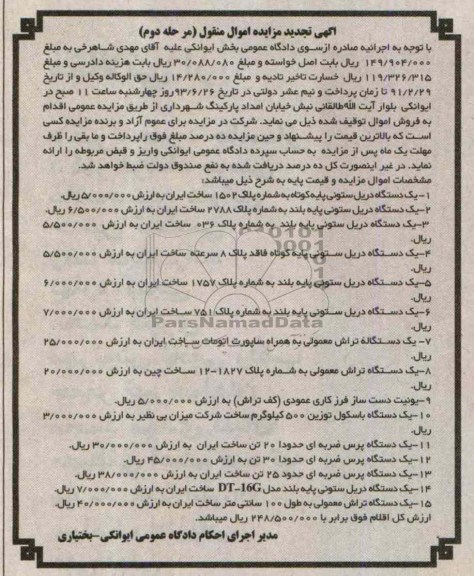 اگهی تجدید مزایده اموال منقول (مرحله دوم)
با توجه به اجرائیه صادره ازسوی دادگاه عمومی بخش ایوانکی علیه آقای مهدی شاهرخی به مبلغ
۱۴۹/۹۰۴/۰۰۰ ریال بابت اصل خواسته و مبلغ ۳۰/۰۸۸/۰۸۰ ریال بابت هزینه دادرسی و مبلغ
۱۱۹/۳۲۶/۳۱۵ ریال خسارت تاخیر تادیه و مبلغ ۱۴/۲۸۰/۰۰۰ ریال حق الوکاله وکیل و از تاریخ
۹۱/۲/۲۹ تا زمان پرداخت و نیم عشر دولتی در تاریخ ۹۳/۶/۲۶ روز چهارشنبه ساعت ۱۱ صبح در
ایوانکی بلوار آیت الله طالقانی نبش خیابان امداد پارکینگ شهرداری از طریق مزایده عمومی اقدام
به فروش اموال توقیف شده ذیل می نماید. شرکت در مزایده برای عموم آزاد و برنده مزایده کسی
است که بالاترین قیمت را پیشنهاد و حین مزایده ده درصد مبلغ فوق راپرداخت و ما بقی را ظرف
مهلت یک ماه پس از مزایده به حساب سپرده دادگاه عمومی ایوانکی واریز و قبض مربوطه را ارائه
نماید. در غیر اینصورت کل ده درصد دریافت شده به نفع صندوق دولت ضبط خواهد شد.
مشخصات اموال مزایده و قیمت پایه به شرح ذیل میباشد:
۱-یک دستگاه دریل ستونی پایه کوتاه به شماره پلاک ۱۵۰۲ ساخت ایران به ارزش ۵/۰۰۰/۰۰۰ ریال.
۲-یک دستگاه دریل ستونی پایه بلند به شماره پلاک ۲۷۸۸ ساخت ایران به ارزش ۶/۵۰۰/۰۰۰ ریال.
۳-یک دستگاه دریل ستونی پایه بلند به شماره پلاک ۰۳۶ ساخت ایران به ارزش ۵/۵۰۰/۰۰۰
ریال.
۴-یک دستگاه دریل ستونی پایه کوتاه فاقد پلاک ۸ سرعته ساخت ایران به ارزش ۵/۵۰۰/۰۰۰
ریال.
۵-یک دستگاه دریل ستونی پایه بلند به شماره پلاک ۱۷۵۷ ساخت ایران به ارزش ۶/۰۰۰/۰۰۰
ریال.
۶-یک دستگاه دریل ستونی پایه بلند به شماره پلاک ۷۵۱ ساخت ایران به ارزش ۷/۰۰۰/۰۰۰
ریال.
ParsNamadData
۷- یک دستگاه تراش معمولی به همراه ساپورت اتومات ساخت ایران به ارزش ۲۵/۰۰۰/۰۰۰
ریال.
۸-یک دستگاه تراش معمولی به شماره پلاک ۱۸۲۷-۱۲ ساخت چین به ارزش ۲۰/۰۰۰/۰۰۰
ریال.
۹-یونیت دست ساز فرز کاری عمودی (کف تراش) به ارزش ۵/۰۰۰/۰۰۰ ریال.
۱۰-یک دستگاه باسکول توزین ۵۰۰ کیلوگرم ساخت شرکت میزان بی نظیر به ارزش ۳/۰۰۰/۰۰۰
ریال.
۱۱-یک دستگاه پرس ضربه ای حدودا ۲۰ تن ساخت ایران به ارزش ۳۰/۰۰۰/۰۰۰ ریال.
۱۲-یک دستگاه پرس ضربه ای حدودا ۳۰ تن به ارزش ۴۵/۰۰۰/۰۰۰ ریال.
۱۳-یک دستگاه پرس ضربه ای حدود ۲۵ تن ساخت ایران به ارزش ۳۸/۰۰۰/۰۰۰ ریال.
۱۴-یک دستگاه دریل ستونی پایه بلند مدل DT-16G ساخت ایران به ارزش ۷/۰۰۰/۰۰۰ ریال.
۱۵-یک دستگاه تراش معمولی به طول ۱۰۰ سانتی متر ساخت ایران به ارزش ۴۰/۰۰۰/۰۰۰ ریال.
ارزش کل اقلام فوق برابر با ۲۴۸/۵۰۰/۰۰۰ ریال میباشد.
مدیر اجرای احکام دادگاه عمومی ایوانکی-بختیاری